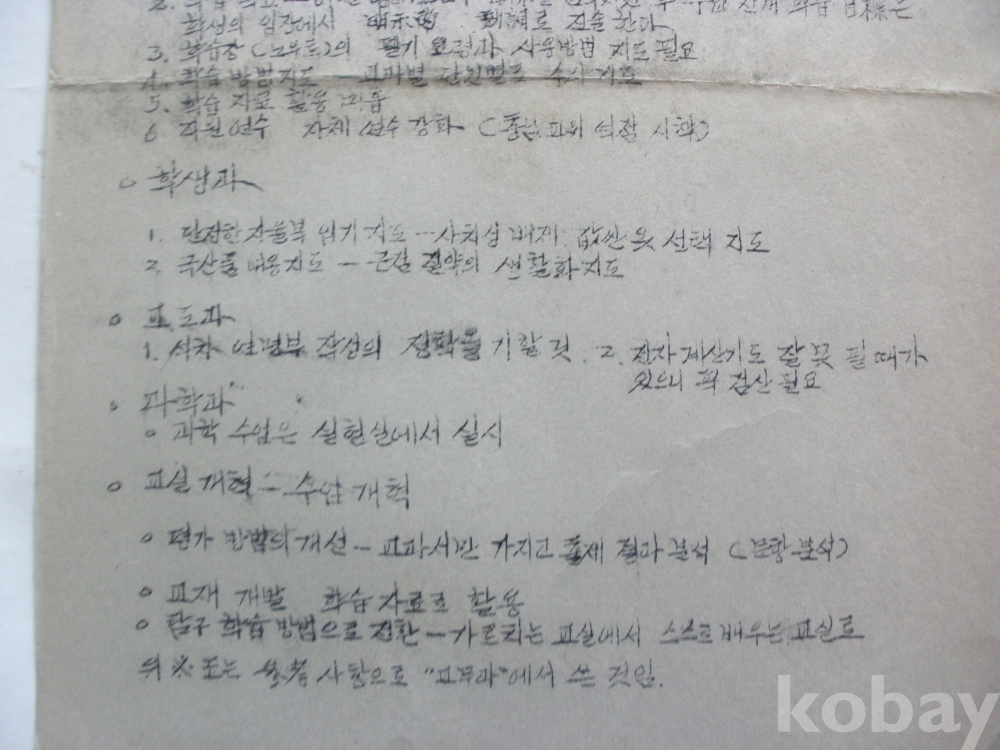 학생의 입장에서 明示的 로 진술 한다
3. 학습장 (노우트)의 필기 요령과 사용방법 지도 필요
4. 학습 방법지도 - 교과별 단원별로 수시 지도
5. 학습 자료 활용 미흡
6 직원연수 자체 연수 강화 (시책)
○ 학생과
1. 단정한 입기 지도 - 사치성 배제. 값싼 옷 선택 지도
2. 국산품 애용지도 - 근검 절약의 생활화지도
○
1. 석차 연명부 작성의 정확을 기할 것. 2. 전자계산기도 잘못 될 때가
있으니 꼭 검산 필요
○ 과학과
○ 과학 수업은 실험실에서 실시
○ 교실 개혁 - 수업 개혁
○ 평가 방법의 개선 - 교과서만 가지고 출제 결과 분석 (문항분석)
○ 교재 개발 학습자료로 활용
○ 탐구 학습 방법으로 전환 - 가르치는 교실에서 스스로 배우는 교실로
위 또는 参考 사항으로 "교무과"에서 쓴 것임.
kobay